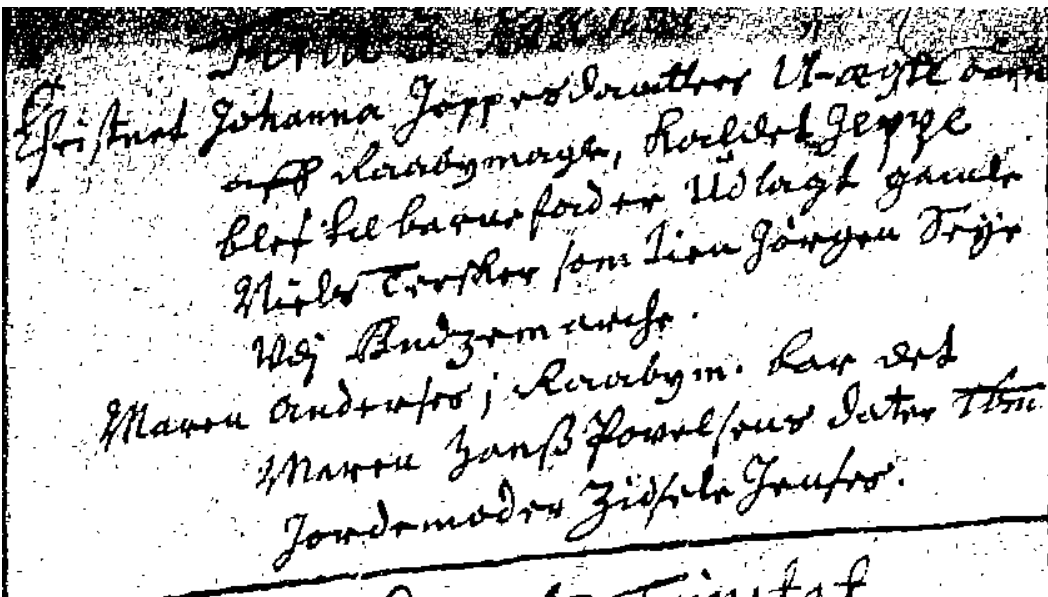 Christnet Johanna Jeppesdaatters U-ægte barn
aff Raabymagle, kaldet Jeppe
blef til barnefader Udlagt gamle
Niels Tersker som tien Jörgen Seÿr
Udj Budzemarche.
Maren Anderses j Raabym. bar det
Maren Hanß Povelsens dater
Jordemoder Zidsele Jenses.
Trinitat